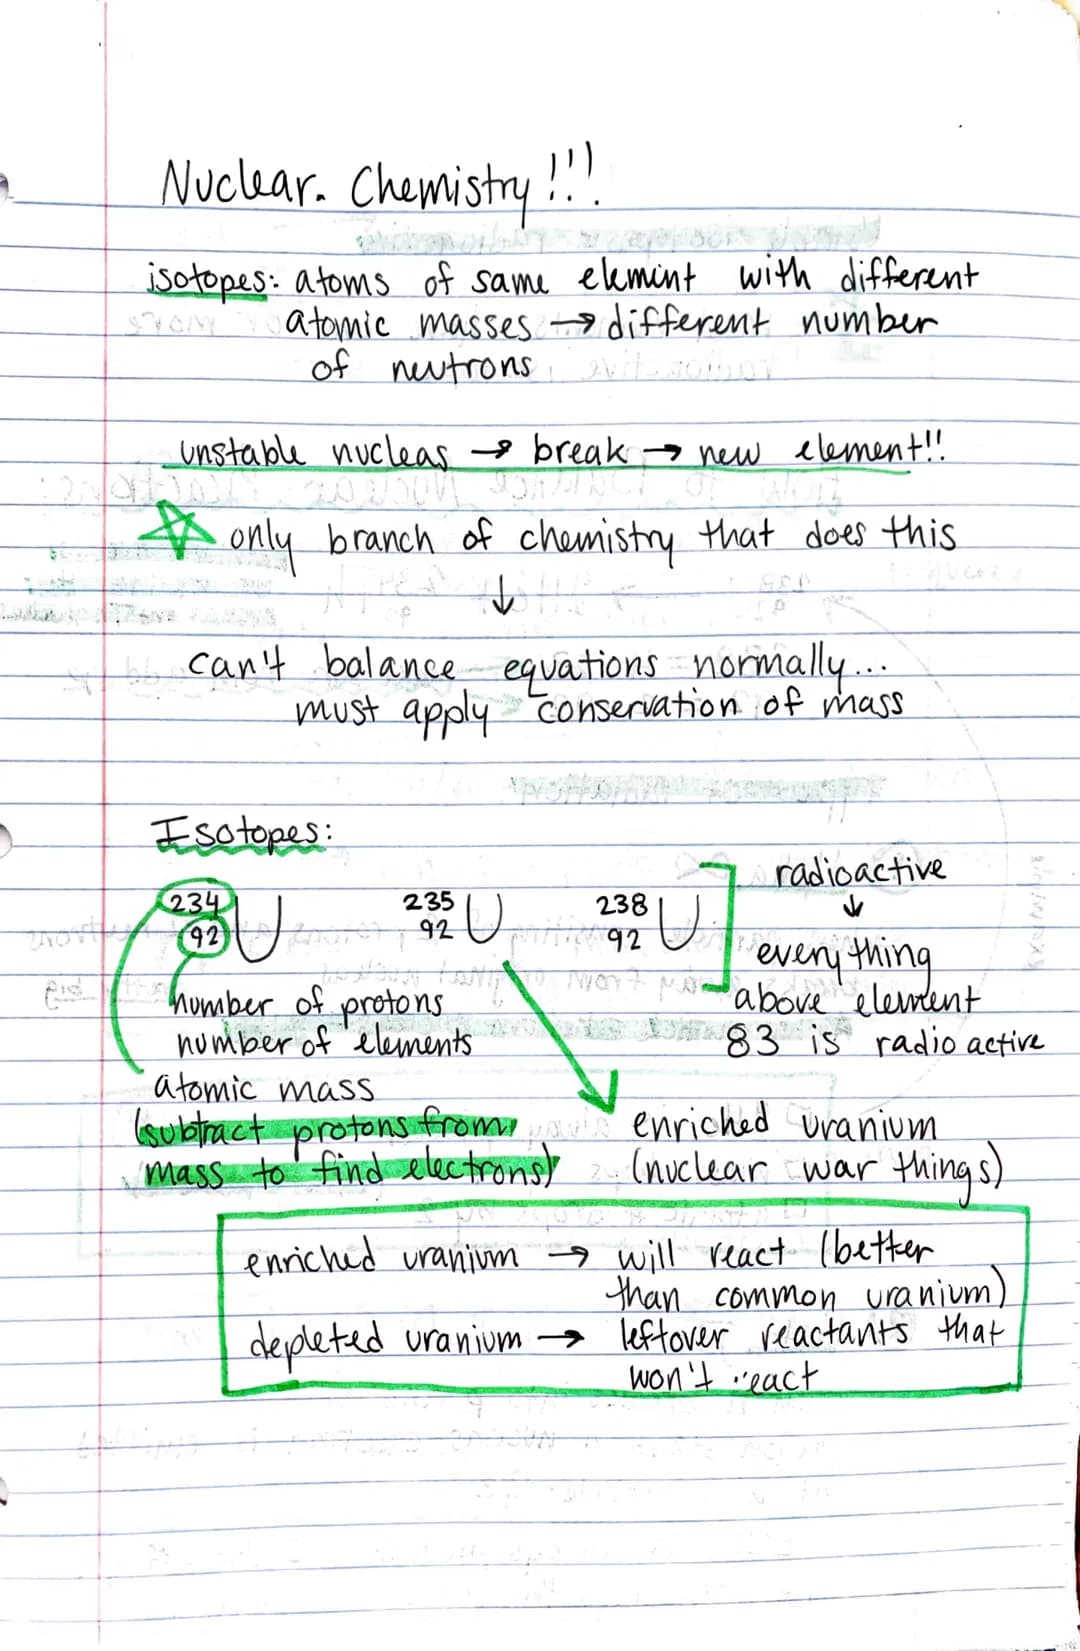 Nuclear. Chemistry!!!
isotopes: atoms of same elemint with different
atomic masses → different number
of neutrons
unstable nucleas → break → new element!!
☆ only branch of chemistry that does this
↓
can't balance equations normally...
must apply conservation of mass
Isotopes:
234 92 U 235 92 U 238 92 U
radioactive
↓
everything
above element
83 is radioactive
number of protons
number of elements
atomic mass
(subtract protons from
mass to find electrons)
enriched uranium
(nuclear war things)
enriched uranium → will react (better
than common uranium)
depleted uranium → leftover reactants that
won't react